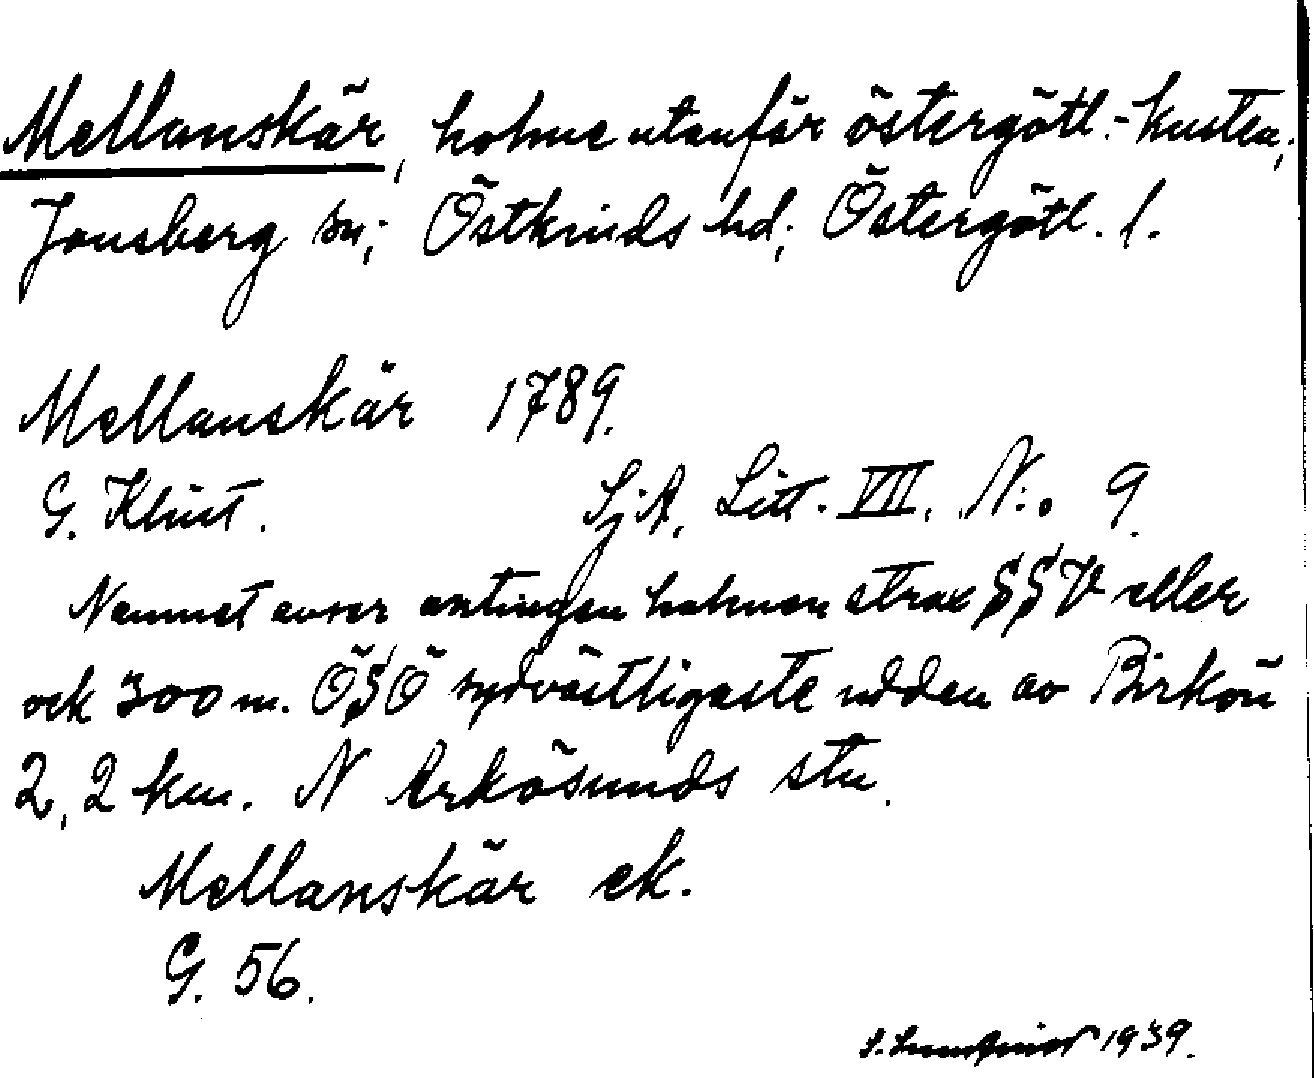 Mellanskär, holme utanför östergötl.-kusten;
Jonsberg sn; Östkinds hd; Östergötl. l.
Mellanskär 1789.
G. Klint. SjA, Litt. VII. N:o 9.
Namnet avser antingen holmen strax SSV eller
ock 300 m. ÖSÖ sydvästligaste udden av Birkön
2,2 km. N Arkösunds stn.
Mellanskär ek.
G. 56.
1939.